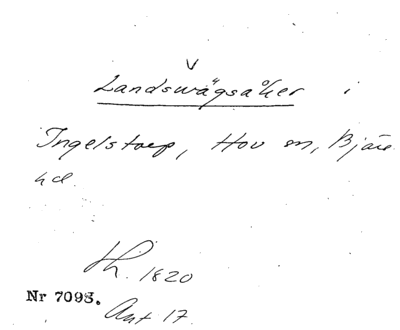 v
Landswägsåker i
Ingelstorp, Hov sn, Bjäre
hd.
Lh. 1820
Nr 7093.
Ant 17